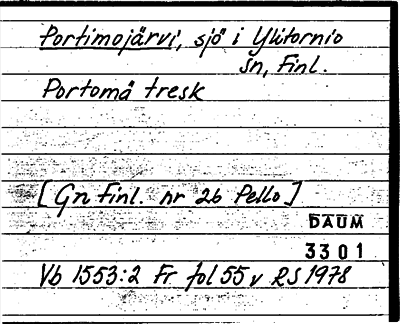 Portimojärvi, sjö i Ylitornio
sn, Finl.
Portomä tresk
[Gn Finl. nr 26 Pello]
DAUM
3301
Vb 1553:2 Fr fol 55 v RS 1978